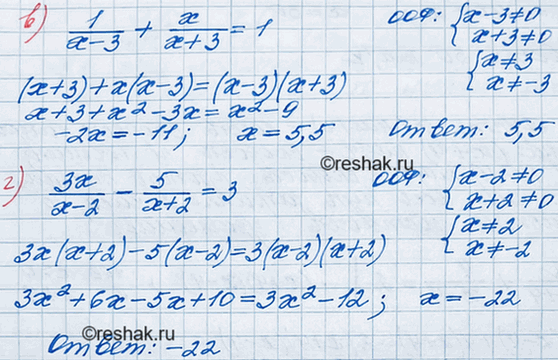 в) 1/(x-3) + x/(x+3) = 1 ООФ: {x-3≠0
x+3≠0
{x≠3
x≠-3
(x+3)+x(x-3)=(x-3)(x+3)
x+3+x²-3x=x²-9
-2x=-11; x=5,5 Ответ: 5,5
©reshak.ru
г) 3x/(x-2) - 5/(x+2) = 3 ООФ: {x-2≠0
x+2≠0
{x≠2
x≠-2
3x(x+2)-5(x-2)=3(x-2)(x+2)
3x²+6x-5x+10=3x²-12; x=-22
©reshak.ru
Ответ: -22